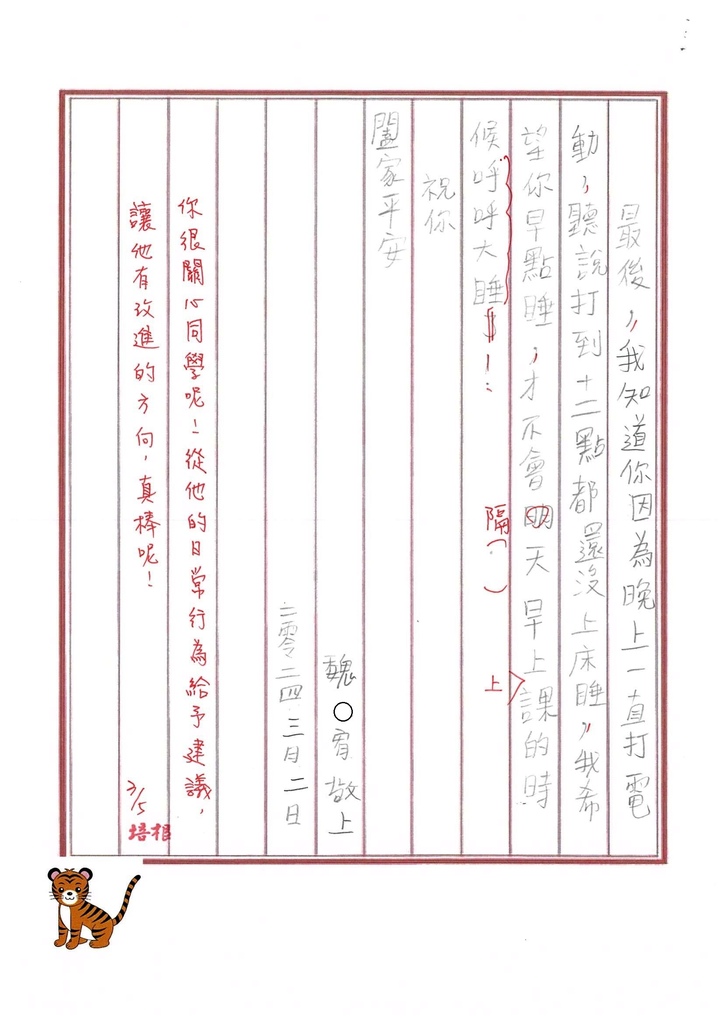 最後，我知道你因為晚上一直打電
動，聽說打到十二點都還沒上床睡，我希
望你早點睡，才不會明天早上課的時
隔
上
候呼呼大睡！
祝你
闔家平安
魏○宥敬上
二零二四三月二日
你很關心同學呢！從他的日常行為給予建議，
讓他有改進的方向，真棒呢！
3/5